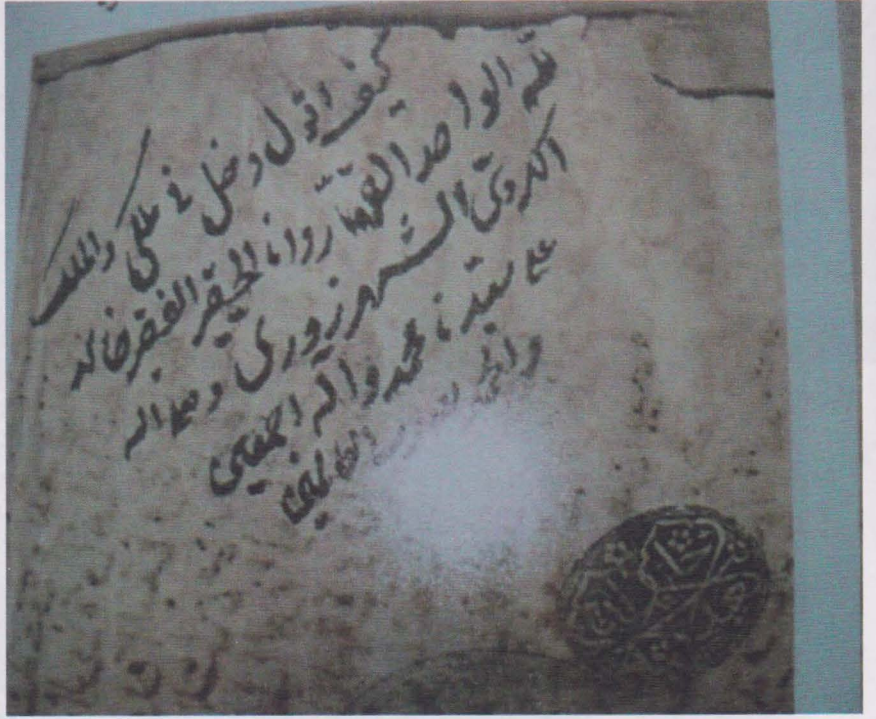 كيف اقول دخل في ملكي والملك
لله الواحد القهار وانا الحقير الفقير خالد
الكردي الشهرزوري وصلى الله
على سيدنا محمد واله اجمعين
والحمد لله رب العالمين